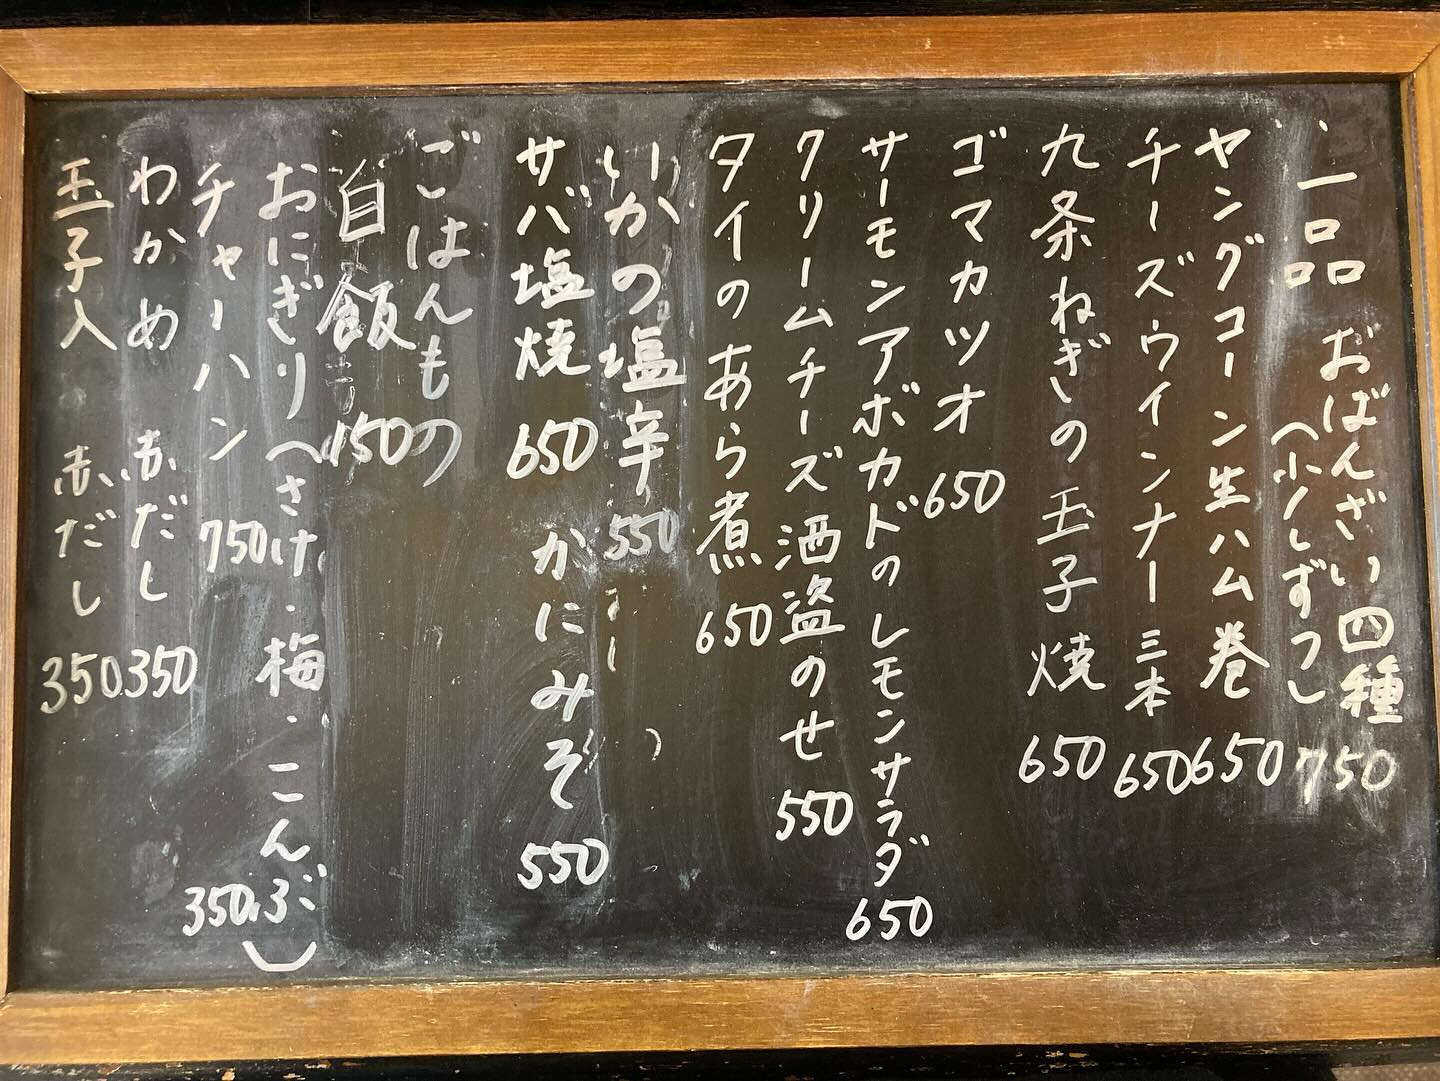 一品
おばんざい四種 750
(少しずつ)
ヤングコーン生ハム巻 650
チーズウインナー三本 650
九条ねぎの玉子焼 650
ゴマカツオ 650
サーモンアボカドのレモンサラダ 650
クリームチーズ酒盗のせ 550
タイのあら煮 650
いかの塩辛 550
サバ塩焼 650
かにみそ 550
ごはんもの
白飯 150
おにぎり(さけ・梅・こんぶ) 350
チャーハン 750
わかめ 赤だし 350
玉子入 赤だし 350